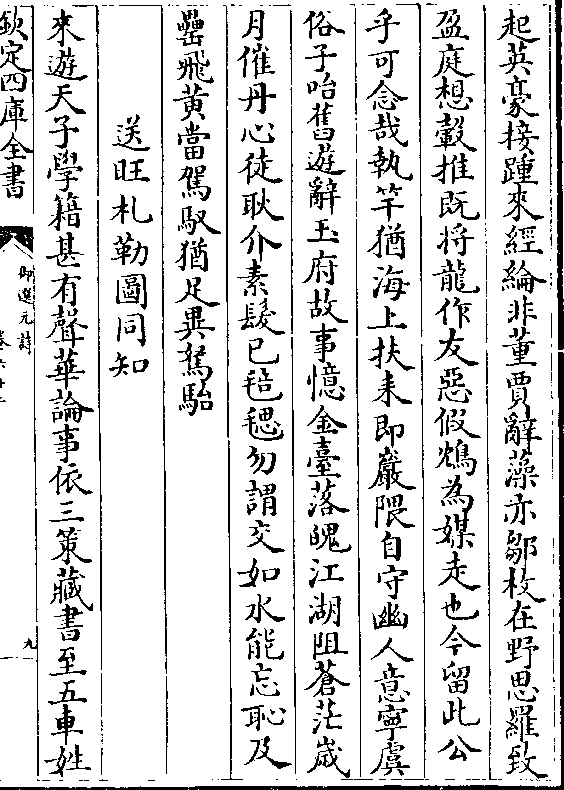 起英豪接踵來經綸非董賈辭藻亦鄒枚在野思羅致
盈庭想轂推既將龍作友惡假鴆為媒走也今留此公
乎可念哉執竿猶海上扶耒即巖隈自守幽人意寧虞
俗子咍舊遊辭玉府故事憶金臺落魄江湖阻蒼茫歲
月催丹心徒耿介素髮已毰毸勿謂交如水能忘恥及
罍飛黃當駕馭猶足異駑駘
送旺札勒圖同知
來遊天子學籍甚有聲華論事依三策藏書至五車姓
欽定四庫全書
御選元詩
九